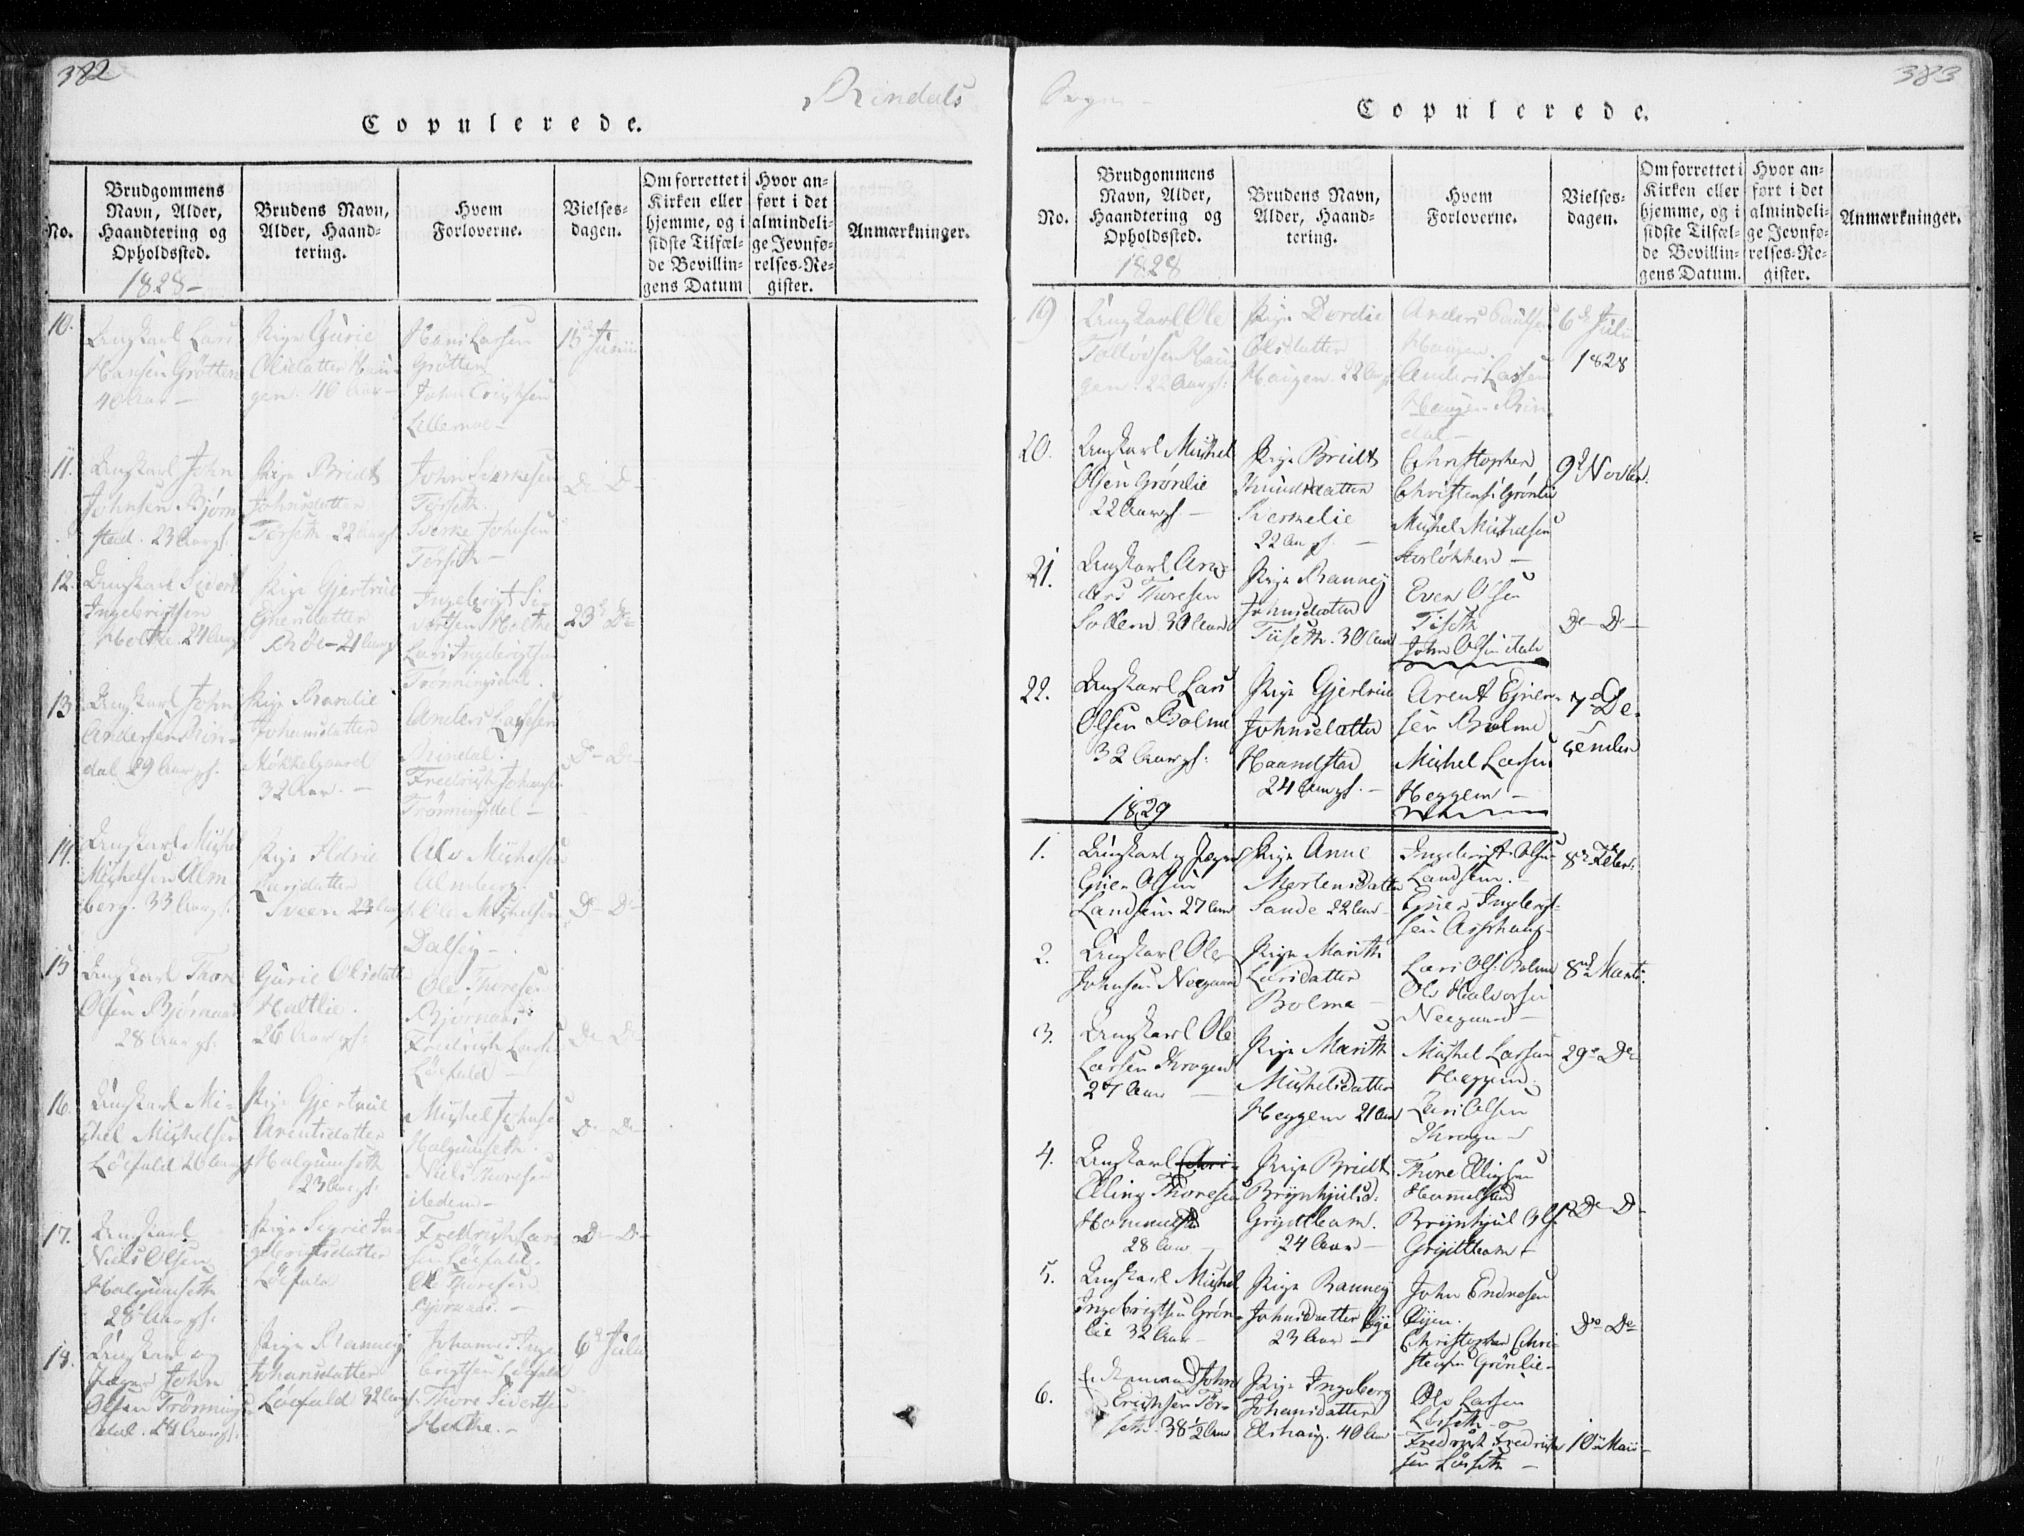 382
Rindals
Copulerede.
No.
Brudgommens
Navn, Alder,
Haandtering og
Opholdssted.
1828-
Brudens Navn,
Alder, Haand-
tering.
Hvem
Forloverne.
Vielses-
dagen.
Om forrettet i
Kirken eller
hjemme, og i
sidste Tilfæl-
de Bevillin-
gens Datum
Hvor an-
ført i det
almindeli-
ge Jevnfø-
relses-Re-
gister.
Anmærkninger.
10.
Ungkarl Lars
Hansen Grøtten
40 Aar -
Pige Gurie
Olsdatter Hau-
gen. 40 Aar -
Hans Larsen
Grøtten
John
Lillemoe -
15de Junii
11.
Ungkarl John
Johnsen Bjørn
stad. 23 Aar gl.
Pige Bridt
Johnsdatter
Tørseth 22 Aar gl.
John Sverkesen
Tørseth.
Sverke Johnsen
Tørseth -
D- D-
12.
Ungkarl Sivert
Ingebrigtsen
Holthe. 24 Aar gl.
Pige Gjertrud
Ejnersdatter
Bøe - 21 Aar gl.
Ingebrigt Si-
vertsen Holthe
Lars Ingebrigtsen
Trønningsdal.
23de D-
13
Ungkarl John
Andersen Rin-
dal. 29 Aar gl.
Pige Brandie
Johansdatter
Møkkelgaard
32 Aar. -
Anders Larsen
Rindal.
Fredrich Johansen
Trønningsdal -
D- D-
14.
Ungkarl Michel
Michelsen Alm
berg. 33 Aar gl.
Pige Ildrie
Larsdatter
Sveen 23 Aar gl.
Ole Michelsen
Almberg.
Ole Michelsen
Dalseg -
D- D-
15
Ungkarl Thore
Olsen Bjørnaas
28 Aar gl.
Gurie Olsdatter
Holtlie.
26 Aar gl.
Ole Thoresen
Bjørnaas
Fredrich Larsen
Løefald -
D- D-
16.
Ungkarl Mi-
chel Michelsen
Løefald 26 Aar gl.
Pige Gjertrud
Arentsdatter
Halgunseth
23 Aar gl.
Michel Johnsen
Halgunseth.
Niels Thoresen
ibidem -
D- D-
17.
Ungkarl
Niels Olsen
Halgunseth
28 Aar gl.
Pige Sigrie In-
gebrigtsdatter
Løefald
Fredrich Lar-
sen Løefald.
Ole Thoresen
Bjørnaas. -
D- D-
18.
Ungkarl og
Jæger John
Olsen Trønnings-
dal. 24 Aar gl.
Pige Ranney
Johansdatter
Løefald 32 Aar gl.
Johannes Inge-
brigtsen Løefald
Thore Sivertsen
Holthe. -
6te Julii
383
Sogn -
Copulerede.
No.
Brudgommens
Navn, Alder,
Haandtering og
Opholdssted.
1828
Brudens Navn,
Alder, Haand-
tering.
Hvem
Forloverne.
Vielses-
dagen.
Om forrettet i
Kirken eller
hjemme, og i
sidste Tilfæl-
de Bevillin-
gens Datum.
Hvor an-
ført i det
almindeli-
ge Jevnfø-
relses-Re-
gister.
Anmærkninger.
19
Ungkarl Ole
Tollevsen Hau-
gen. 22 Aar gl.
Pige Dordie
Olsdatter
Haugen. 22 Aar gl.
Anders Paulsen
Haugen.
Anders Larsen
Haugen Rin-
dal -
6te Julii
1828
20.
Ungkarl Michel
Olsen Grønlie
22 Aar gl. -
Pige Bridt
Knudsdatter
22 Aar gl. -
Christopher
Christensen Grønlie
Michel Michelsen
Storløkken -
9de Novbr.
21.
Ungkarl An-
ders Thoresen
Sollem 30 Aar
Pige Ranney
Johnsdatter
Tiiseth. 30 Aar
Even Olsen
Tiseth
John Olsen
D- D-
22.
Ungkarl Lars
Olsen Bolme
32 Aar gl.
Pige Gjertrud
Johnsdatter
Haandstad
24 Aar gl. -
Arent Ejner-
sen Bolme
Michel Larsen
Heggem -
7de De-
cember
1829
1.
Ungkarl og Jæger
Ejner Olsen
Landsem 27 Aar
Pige Anne
Mortensdatter
Sande 22 Aar -
Ingebrigt Olsen
Landsem. -
Ejner Ingebrigt-
sen Aasphaug -
8de Febr.
2.
Ungkarl Ole
Johnsen Neegaard
Pige Marith
Larsdatter
Bolme -
Lars Ols: Bolme
Ole Halvorsen
Neegaard -
8de Marti.
3.
Ungkarl Ole
Larsen Krogen
27 Aar -
Pige Marith
Michelsdatter
Heggem 21 Aar
Michel Larsen
Heggem.
Lars Olsen
Krogen -
29de D-
4.
Ungkarl
Elling Thoresen
28 Aar -
Pige Bridt
Brynhjulsd:
Grytteam.
24 Aar -
Thore Ellingsen
Brynhjul Ols:
Grytteam -
D- D-
5.
Ungkarl Michel
Ingebrigtsen Grøn-
lie 32 Aar -
Pige Ranney
Johnsdatter Øye
23 Aar -
John Endresen
Øyen.
Christopher Chri-
stensen Grønlie -
D- D-
6.
Enkemand John
Erichsen Tør-
seth. 38 1/2 Aar
Pige Ingeborg
Johansdatter
Elshaug. 40 Aar
Ole Larsen
Løseth -
Fredrich Fredrich-
sen Løseth -
10de Maii -